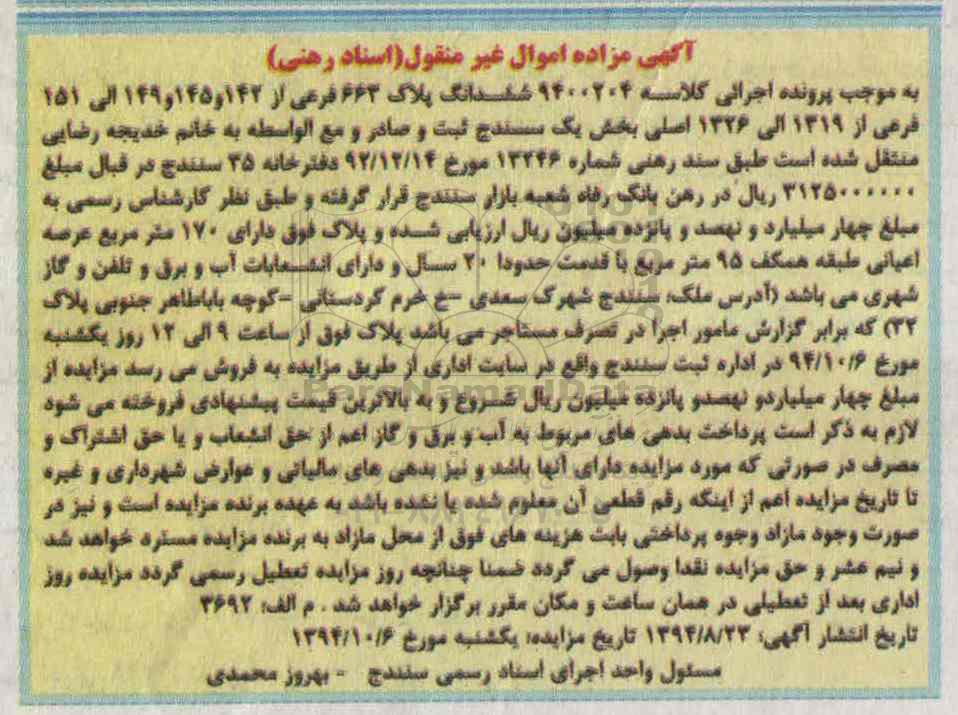 آگهی مزاده اموال غیر منقول(اسناد رهنی)
به موجب پرونده اجرائی کلاسه ۹۴۰۰۲۰۴ ششدانگ پلاک ۶۶۳ فرعی از ۱۴۲و۱۴۵و۱۴۹ الی ۱۵۱
فرعی از ۱۳۱۹ الی ۱۳۲۶ اصلی بخش یک سنندج ثبت و صادر و مع الواسطه به خانم خدیجه رضایی
منتقل شده است طبق سند رهنی شماره ۱۳۲۴۶ مورخ ۹۲/۱۲/۱۴ دفترخانه ۳۵ سنندج در قبال مبلغ
۳۱۲۵۰۰۰۰۰۰ ریال در رهن بانک رفاه شعبه بازار سنندج قرار گرفته و طبق نظر کارشناس رسمی به
مبلغ چهار میلیارد و نهصد و پانزده میلیون ریال ارزیابی شده و پلاک فوق دارای ۱۷۰ متر مربع عرصه
اعیانی طبقه همکف ۹۵ متر مربع با قدمت حدودا ۲۰ سال و دارای انشعابات آب و برق و تلفن و گاز
شهری می باشد (آدرس ملک: سنندج شهرک سعدی -خ خرم کردستانی -کوچه باباطاهر جنوبی پلاک
۳۲) که برابر گزارش مامور اجرا در تصرف مستاجر می باشد پلاک فوق از ساعت ۹ الی ۱۲ روز یکشنبه
مورخ ۹۴/۱۰/۶ در اداره ثبت سنندج واقع در سایت اداری از طریق مزایده به فروش می رسد مزایده از
مبلغ چهار میلیاردو نهصدو پانزده میلیون ریال شروع و به بالاترین قیمت پیشنهادی فروخته می شود
لازم به ذکر است پرداخت بدهی های مربوط به آب و برق و گاز اعم از حق انشعاب و یا حق اشتراک و
مصرف در صورتی که مورد مزایده دارای آنها باشد و نیز بدهی های مالیاتی و عوارض شهرداری و غیره
تا تاریخ مزایده اعم از اینکه رقم قطعی آن معلوم شده یا نشده باشد به عهده برنده مزایده است و نیز در
صورت وجود مازاد وجوه پرداختی بابت هزینه های فوق از محل مازاد به برنده مزایده مسترد خواهد شد
و نیم عشر و حق مزایده نقدا وصول می گردد ضمنا چنانچه روز مزایده تعطیل رسمی گردد مزایده روز
اداری بعد از تعطیلی در همان ساعت و مکان مقرر برگزار خواهد شد . م الف: ۳۶۹۲
تاریخ انتشار آگهی: ۱۳۹۴/۸/۲۳ تاریخ مزایده: یکشنبه مورخ ۱۳۹۴/۱۰/۶
مسئول واحد اجرای اسناد رسمی سنندج - بهروز محمدی
ParsNamadData